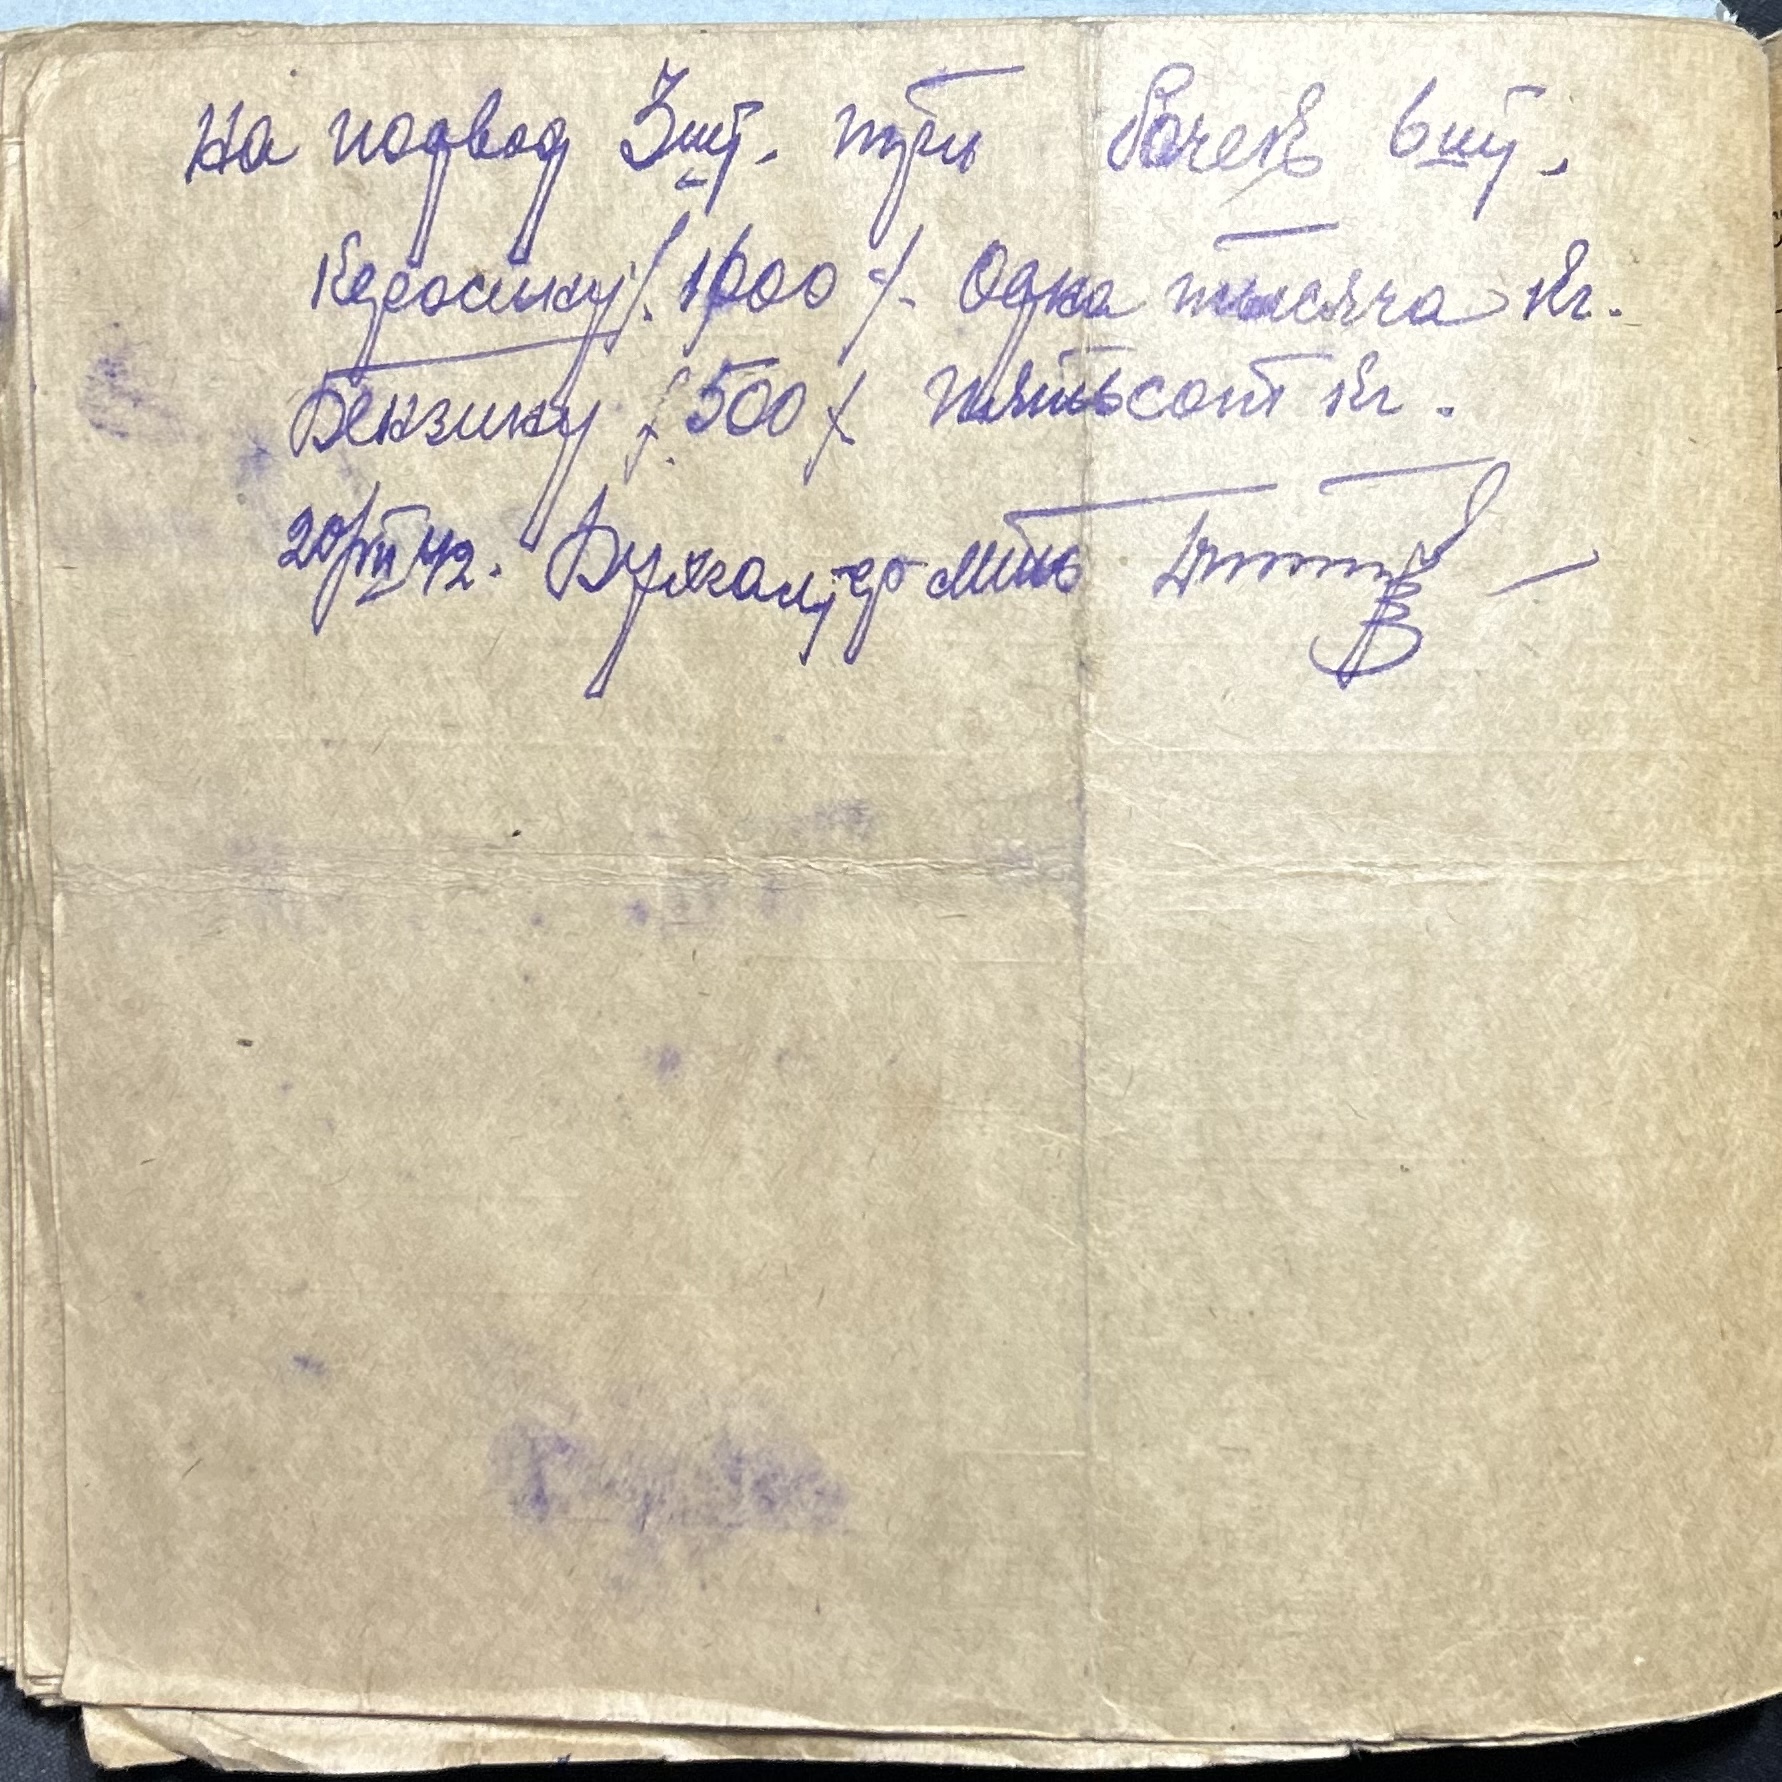 На подвод 3 шт. три бочек 6 шт.
Керосину /. 1000 /. Одна тысяча кг.
Бензину /. 500 /. Пятьсот кг.
20/VII 42. Бухгалтер МТС